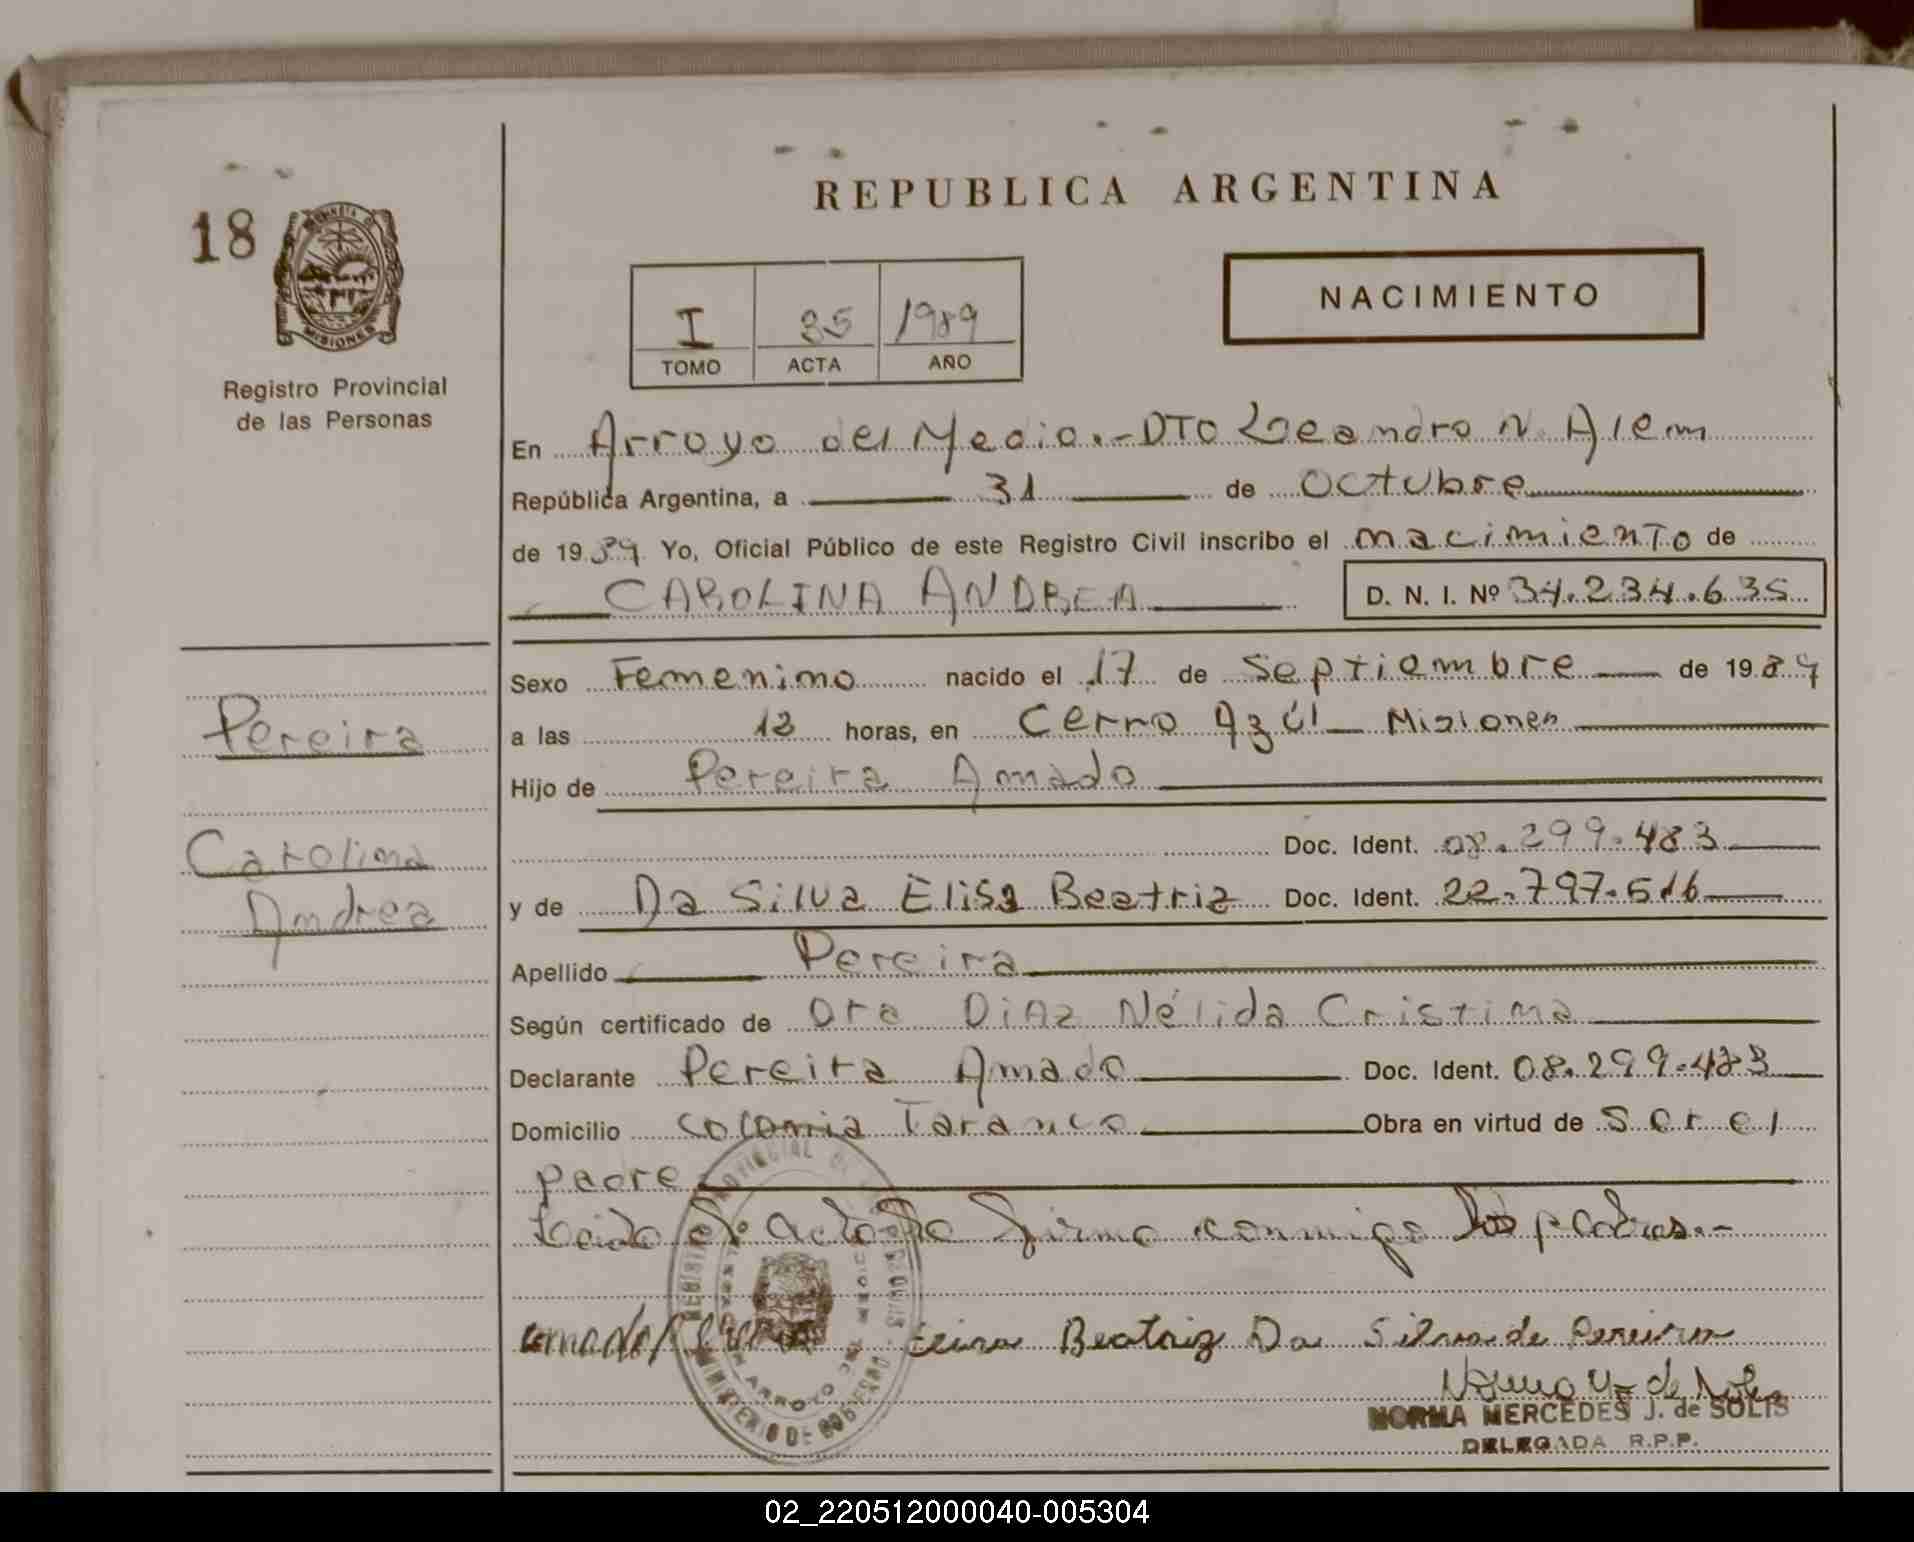 REPUBLICA ARGENTINA
18
MISIONES
Registro Provincial
de las Personas
I 35 1989
TOMO ACTA AÑO
NACIMIENTO
En Arroyo del Medio.- DTO Leandro N. Alem
República Argentina, a 31 de Octubre
de 1989 Yo, Oficial Público de este Registro Civil inscribo el nacimiento de
CAROLINA ANDREA D. N. I. Nº 34.234.635
Sexo Femenino nacido el 17 de Septiembre de 1989
a las horas, en Cerro Azúl Misiones
Hijo de Pereira Amado
Doc. Ident. 08.299.483
y de Da Silva Elisa Beatriz Doc. Ident. 22.797.516
Apellido Pereira
Según certificado de Dra Diaz Nélida Cristina
Declarante Pereira Amado Doc. Ident. 08.299.483
Domicilio Colonia Taranco Obra en virtud de Ser el
padre
Leida el acta firma conmigo los padres.-
Pereira
Carolina
Andrea
amado Beatriz Da Silva de Pereira
NORMA MERCEDES J. de SOLIS
DELEGADA R.P.P.
MINISTERIO DE GOBIERNO
ARROYO DEL MEDIO
02_220512000040-005304